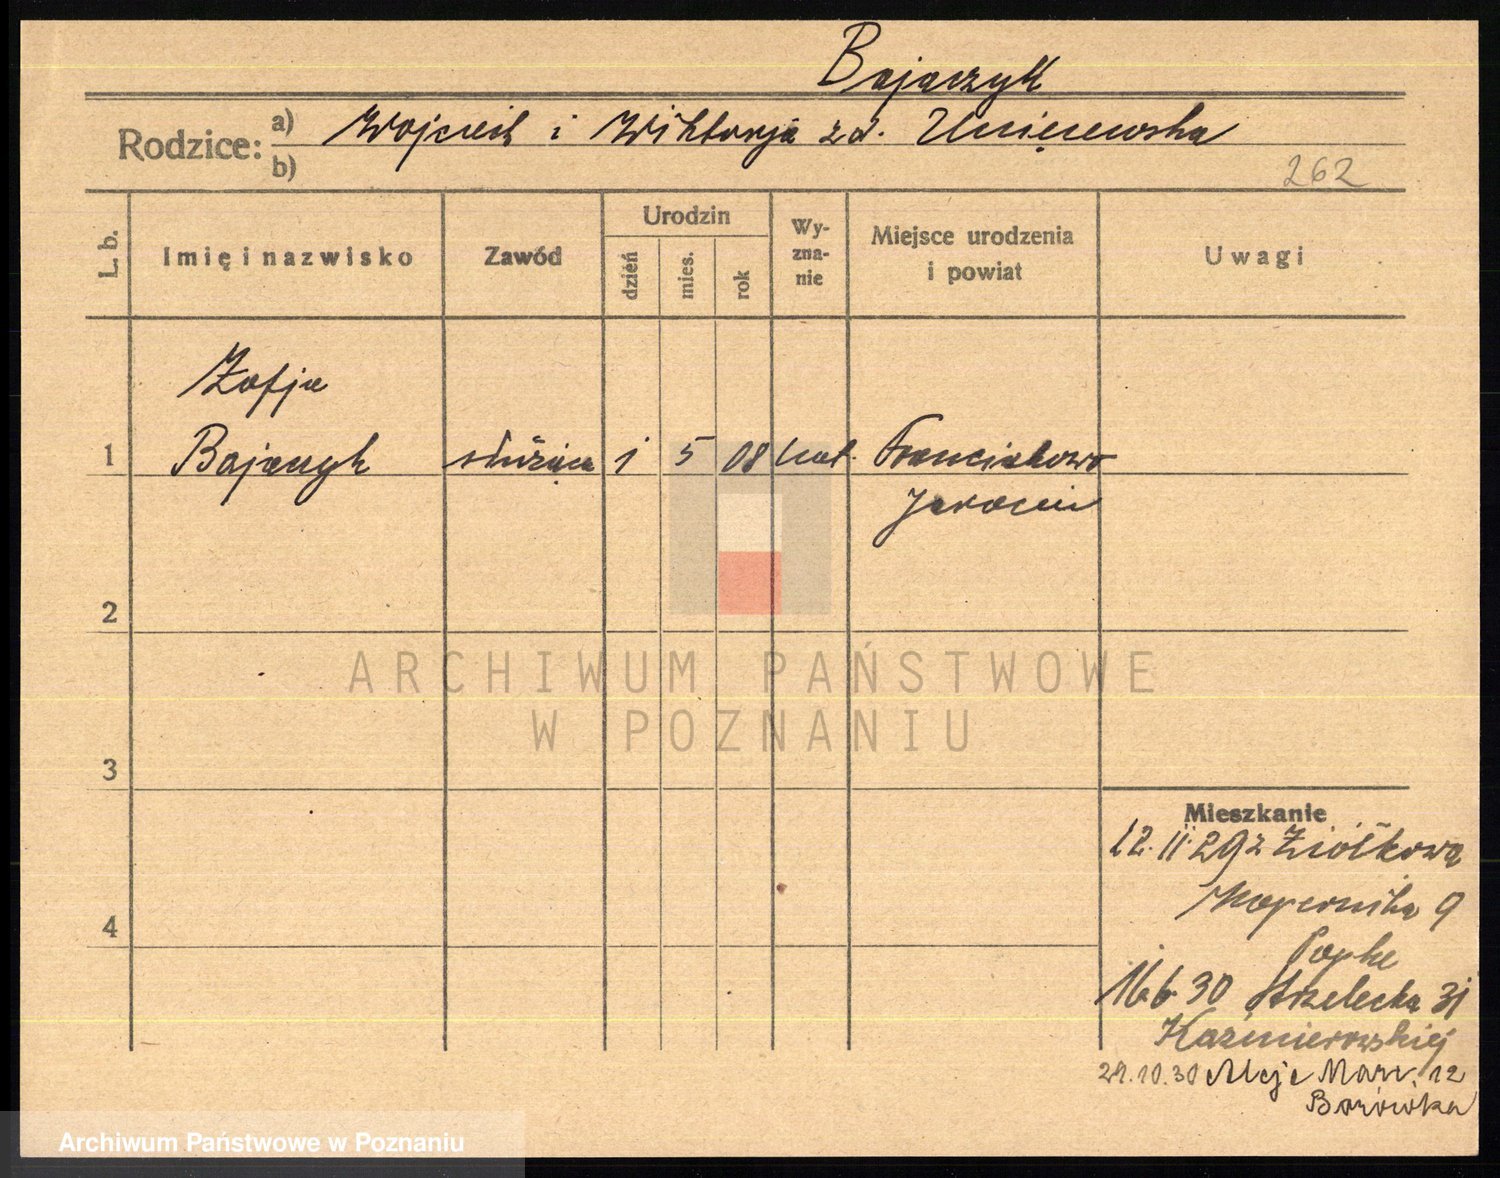 Bajaczyk
Rodzice: a) Wojciech i Wiktorja zd.
b)
262
L. b.
Imię i nazwisko
Zawód
Urodzin
dzień
mies.
rok
Wy-
zna-
nie
Miejsce urodzenia
i powiat
Uwagi
Zofja
1 Bajaczyk służąca 1 5 08 kat. Franciszkowo
Jarocin
2
ARCHIWUM PAŃSTWOWE
W POZNANIU
3
Mieszkanie
12.II.29 z Ziółkowa
4
Kopernika 9
Popke
16 6 30 Strzelecka 31
Kaźmierowskiej
10.30 Aleje Marc. 12
Borówka
Archiwum Państwowe w Poznaniu